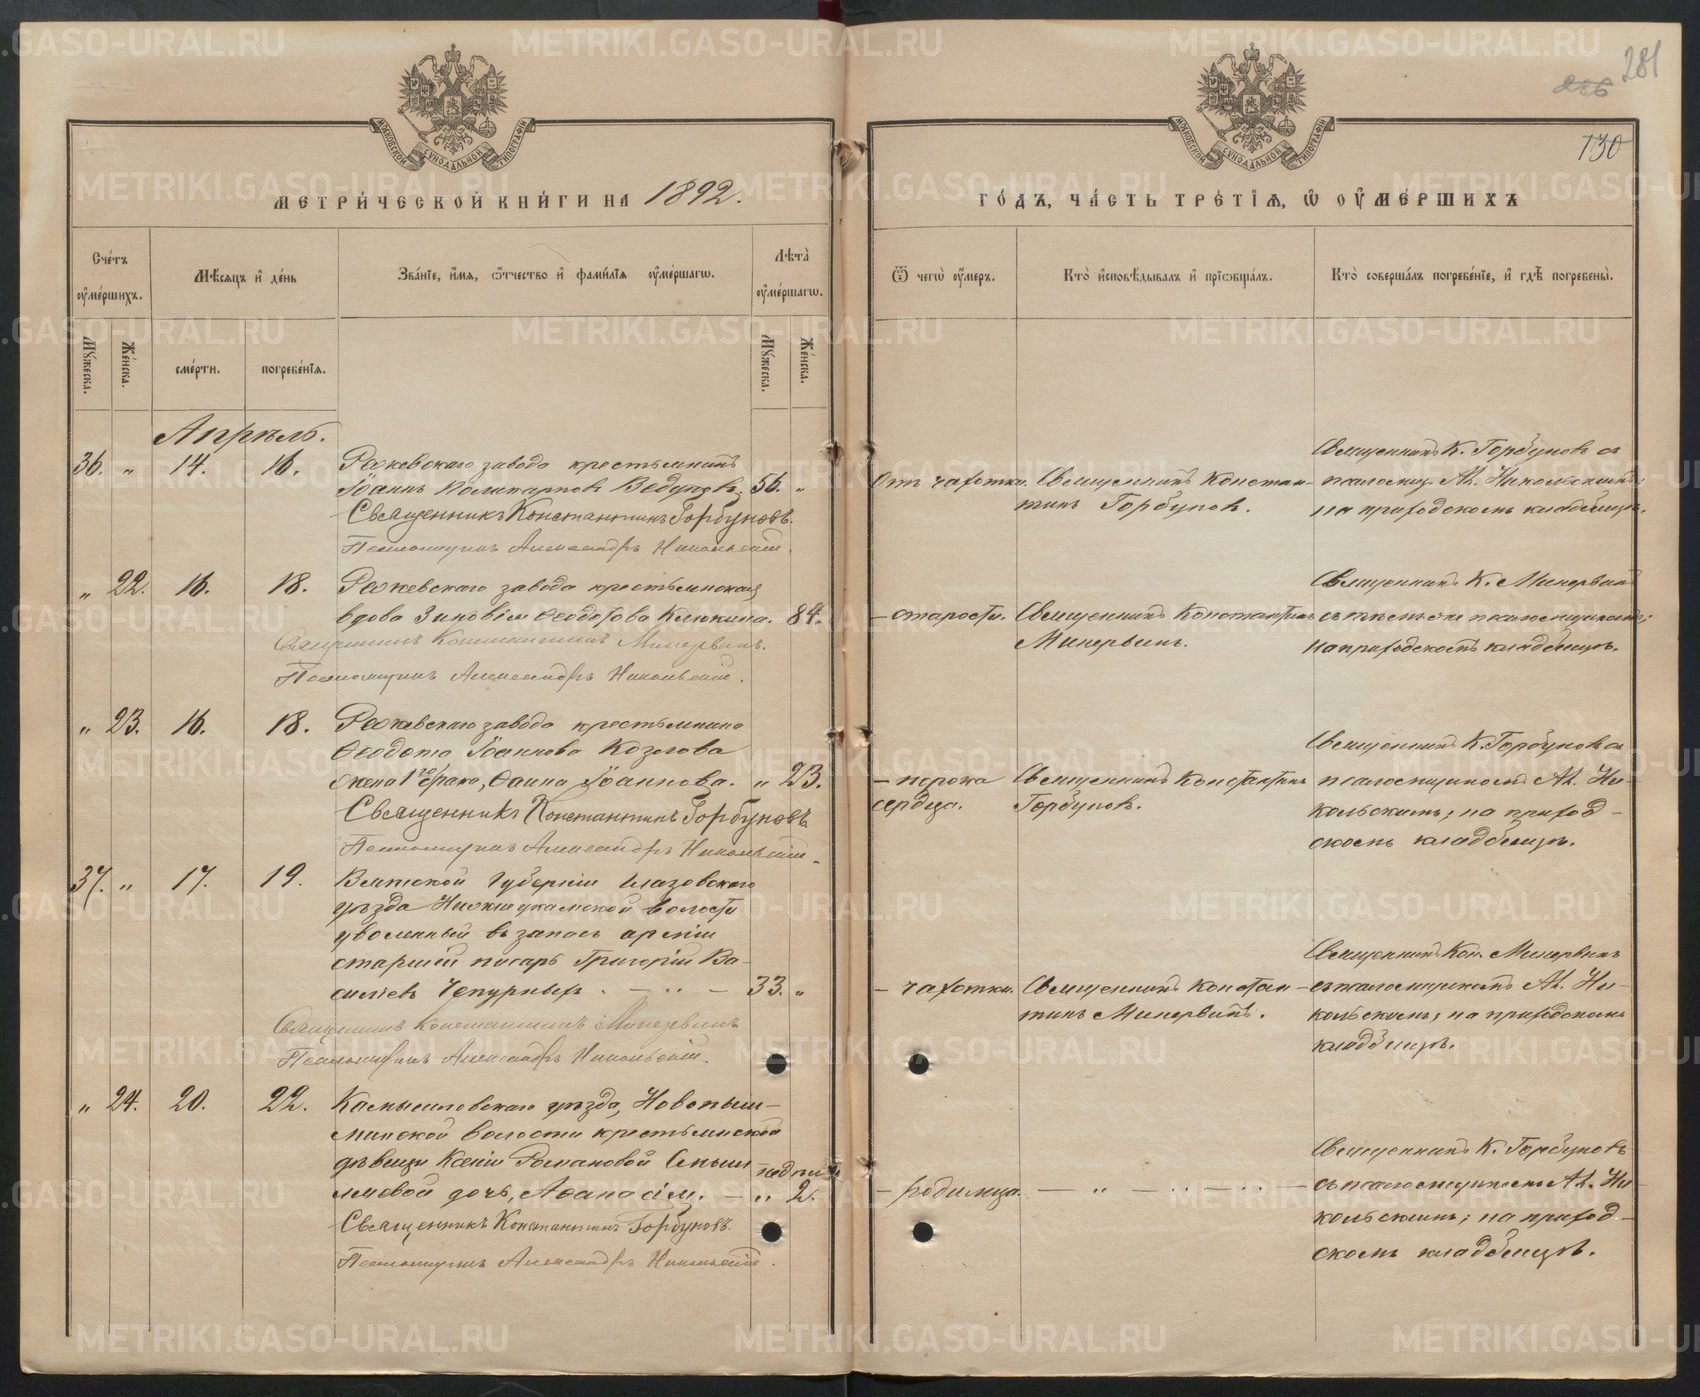 281
286
130
МОСКОВСКОЙ СѴНОДАЛЬНОЙ ТИПОГРАФІИ
МОСКОВСКОЙ СѴНОДАЛЬНОЙ ТИПОГРАФІИ
МЕТРИ́ЧЕСКОЙ КНИ́ГИ НА 1892.
ГО́ДЪ, ЧА́СТЬ ТРЕ́ТІѦ, Ѡ҆ ОУ҆МЕ́РШИХЪ
Сче́тъ оу҆ме́ршихъ.
Мѣ́сяцъ и҆ де́нь
Зва́нїе, и҆́мѧ, ѻ҆́тчество и҆ фами́лїѧ оу҆ме́ршагѡ.
Лѣта̀ оу҆ме́ршагѡ.
Ѿ чегѡ̀ оу҆́меръ.
Кто̀ и҆сповѣ́дывалъ и҆ прїѻбща́лъ.
Кто̀ соверша́лъ погребе́нїе, и҆ гдѣ̀ погребены̀.
Мꙋ́жеска.
Же́нска.
сме́рти.
погребе́нїѧ.
Мꙋ́жеска.
Же́нска.
Апрѣль.
36. „ 14. 16. Режевскаго завода крестьянинъ
Іоаннъ Поликарповъ Ведуновъ. 56. „
Священникъ Константинъ Горбуновъ.
Псаломщикъ Александръ Никольскій.
Отъ чахотки. Священникъ Констан-
тинъ Горбунов.
Священникъ К. Горбуновъ съ
псаломщ. Ал. Никольскимъ;
на приходскомъ кладбищѣ.
„ 22. 16. 18. Режевскаго завода крестьянская
вдова Зиновія Ѳеодотова Клюкина. 84.
Священникъ Константинъ Минервинъ.
Псаломщикъ Александръ Никольскій.
– старости. Священникъ Константинъ
Минервинъ.
Священникъ К. Минервинъ
съ тѣмъ же псаломщикомъ;
на приходскомъ кладбищѣ.
„ 23. 16. 18. Режевскаго завода крестьянина
Ѳеодота Іоаннова Козлова
жена 1го брака, Ѳаина Іоаннова. „ 23.
Священникъ Константинъ Горбуновъ
Псаломщикъ Александръ Никольскій.
– порока
сердца.
Священникъ Константинъ
Горбуновъ.
Священникъ К. Горбуновъ съ
псаломщикомъ Ал. Ни-
кольскимъ; на приход-
скомъ кладбищѣ.
37. „ 17. 19. Вятской губерніи Глазовскаго
уѣзда волости
уволенный въ запасъ арміи
старшій писарь Григорій Ва-
сильевъ Чепурныхъ. – „ – 33. „
Священникъ Константинъ Минервинъ
Псаломщикъ Александръ Никольскій.
– чахотки. Священникъ Констан-
тинъ Минервинъ.
Священникъ Кон. Минервинъ
съ псаломщикомъ Ал. Ни-
кольскимъ; на приходскомъ
кладбищѣ.
„ 24. 20. 22. Камышловскаго уѣзда, Новопыш-
минской волости крестьянской
дѣвицы Ксеніи Романовой
дочь, Аѳанасія. – „ 2. недѣли
Священникъ Константинъ Горбуновъ.
Псаломщикъ Александръ Никольскій.
– родимца. – „ –
Священникъ К. Горбуновъ
съ псаломщикомъ Ал. Ни-
кольскимъ; на приход-
скомъ кладбищѣ.
METRIKI.GASO-URAL.RU